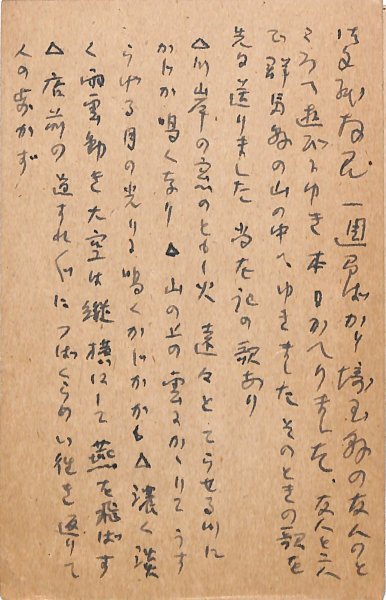 一週間ばかり埼玉縣の友人のと
ころへ遊びにゆき本日かへりました、友人と二人
で群馬縣の山の中へゆきましたそのときの歌を
先日送りました 尚左記の歌あり
△川岸の窓のともし火遠々とてらせる川に
かじか鳴くなり △山の上の雲にかゝりてうす
らげる月の光りに鳴くかじかかも △濃く淡
く雨雲動き大空は縦横にして燕を飛ばす
△店前の道すれ〲につばくらめい往き返りて
人の歩かず